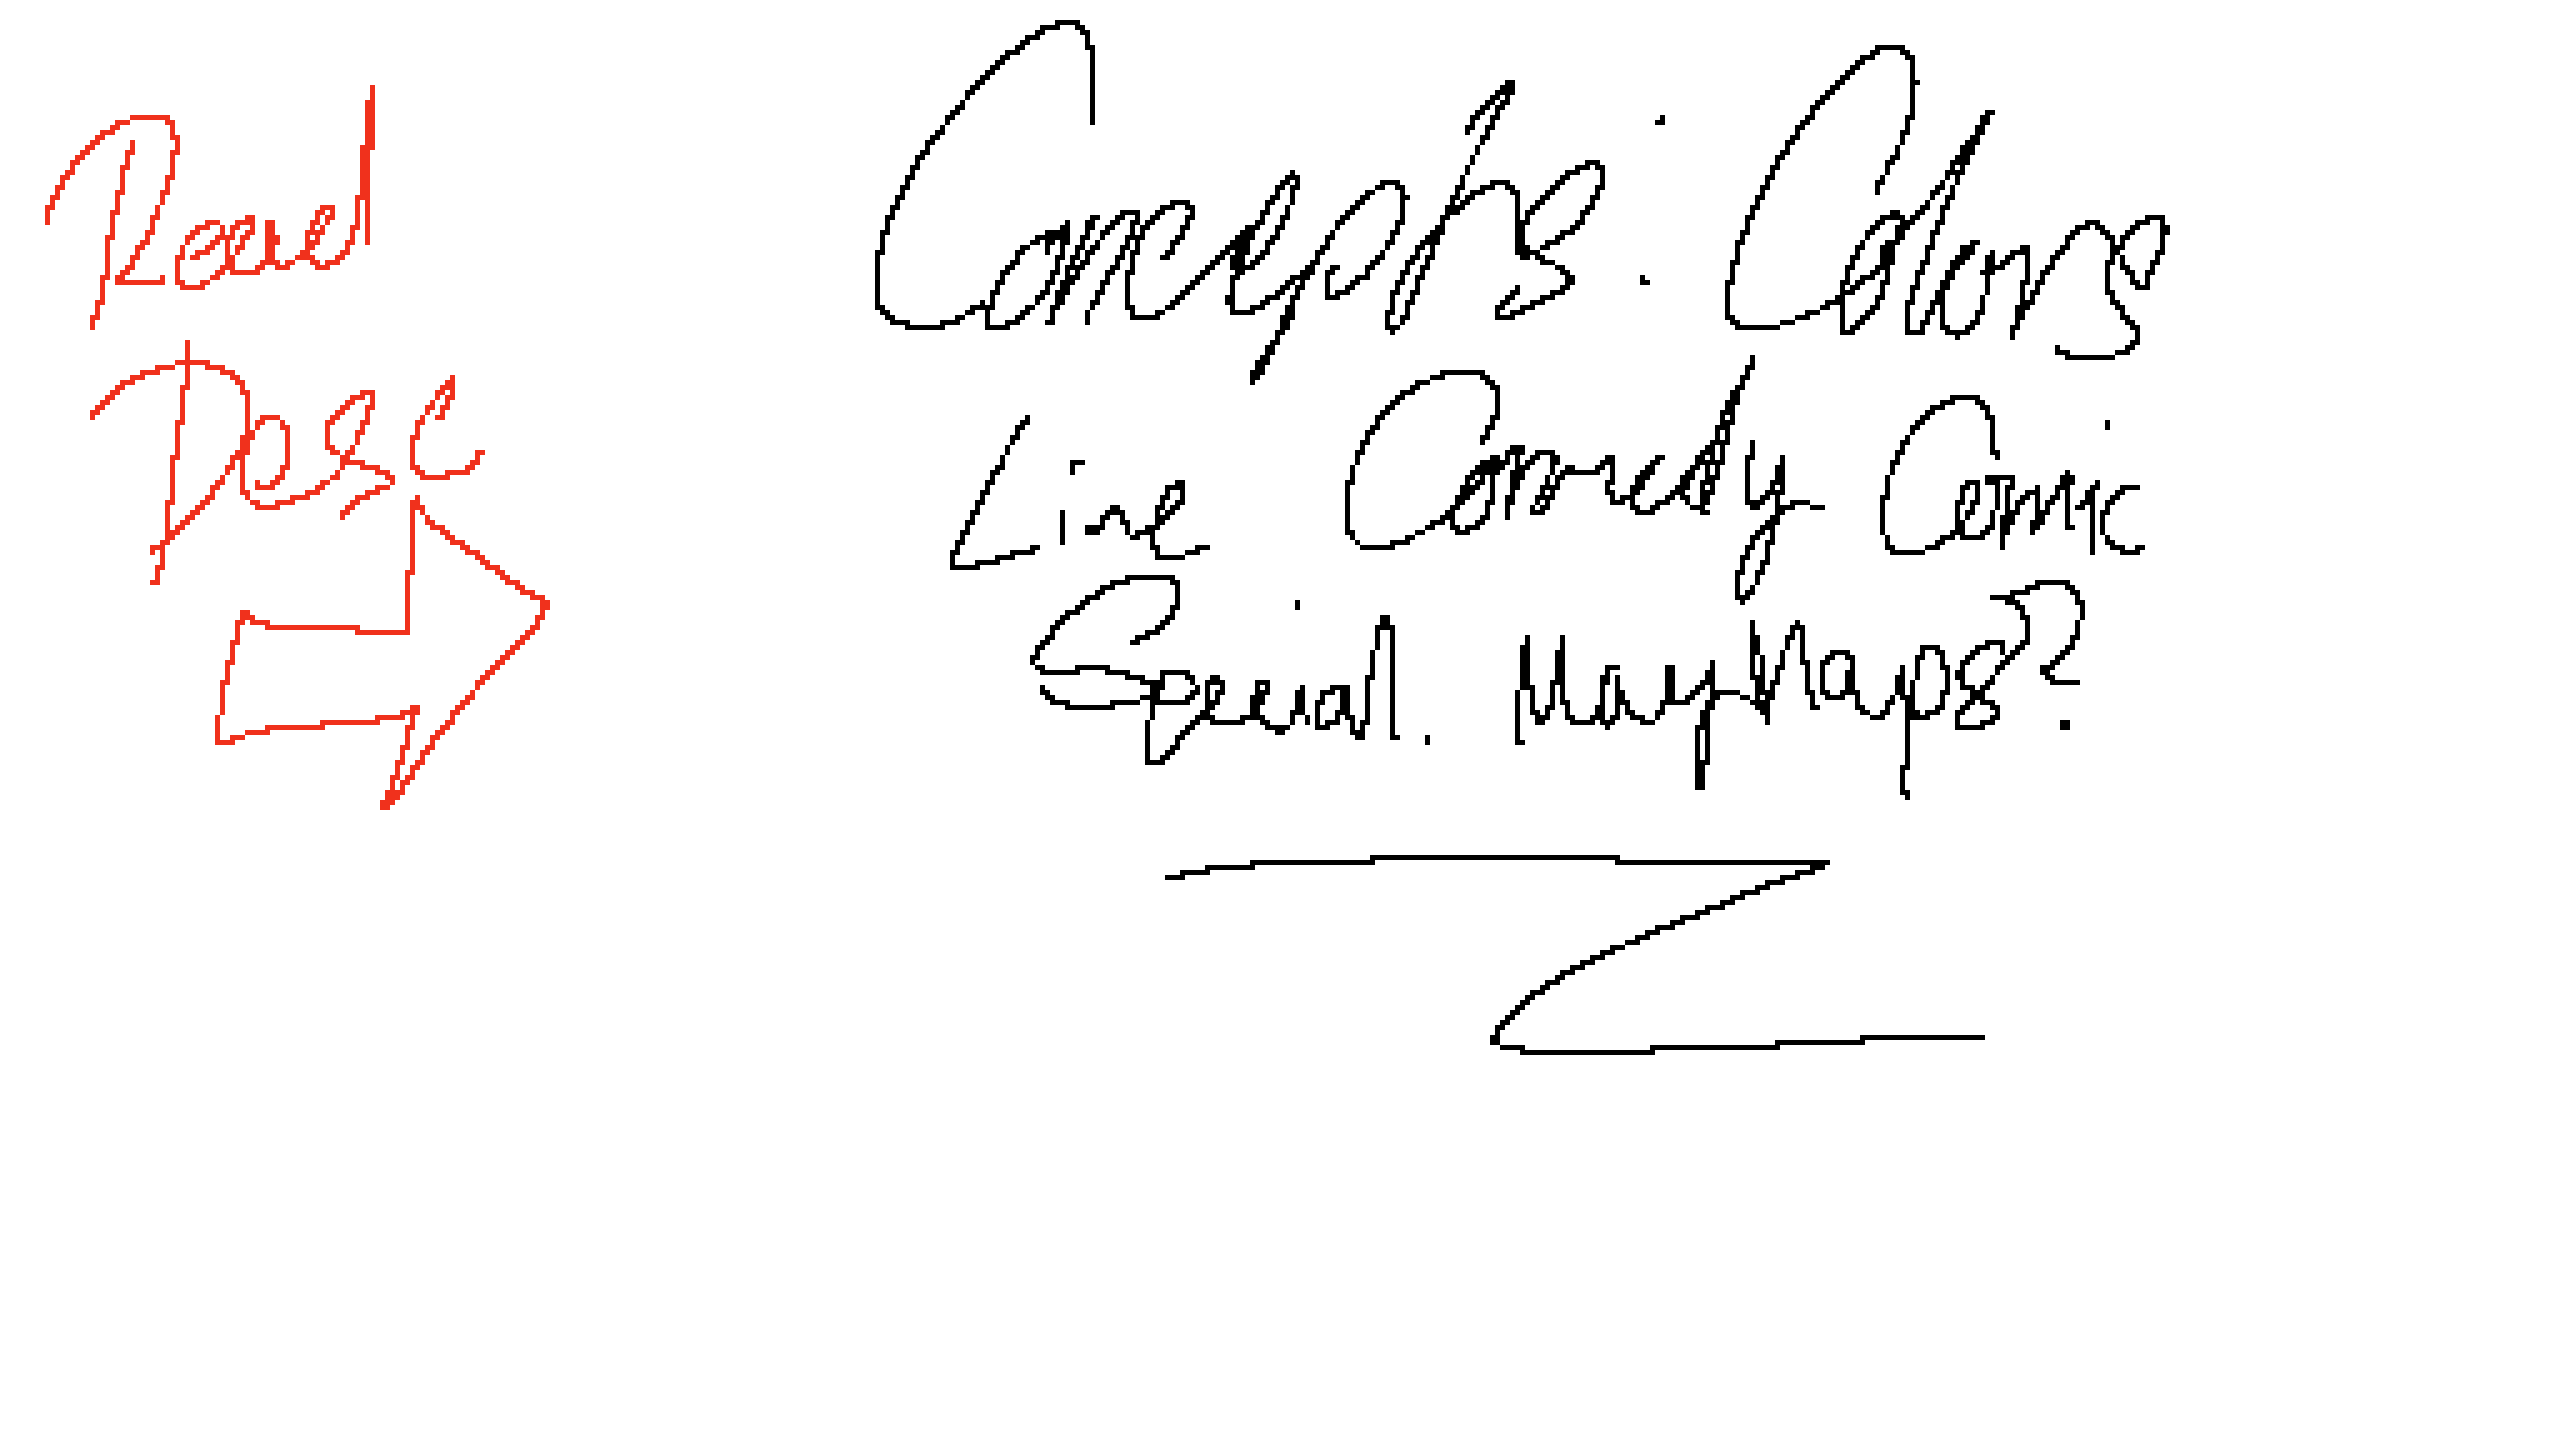 Read
Desc
Concepts: Colors
Line Comedy Comic
Special. MayHaps?